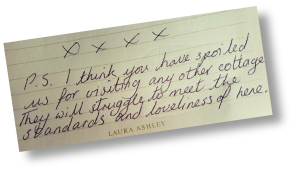 x x x x
P.S. I think you have spoiled
us for visiting any other cottage
They will struggle to meet the
standards and loveliness of here.
LAURA ASHLEY